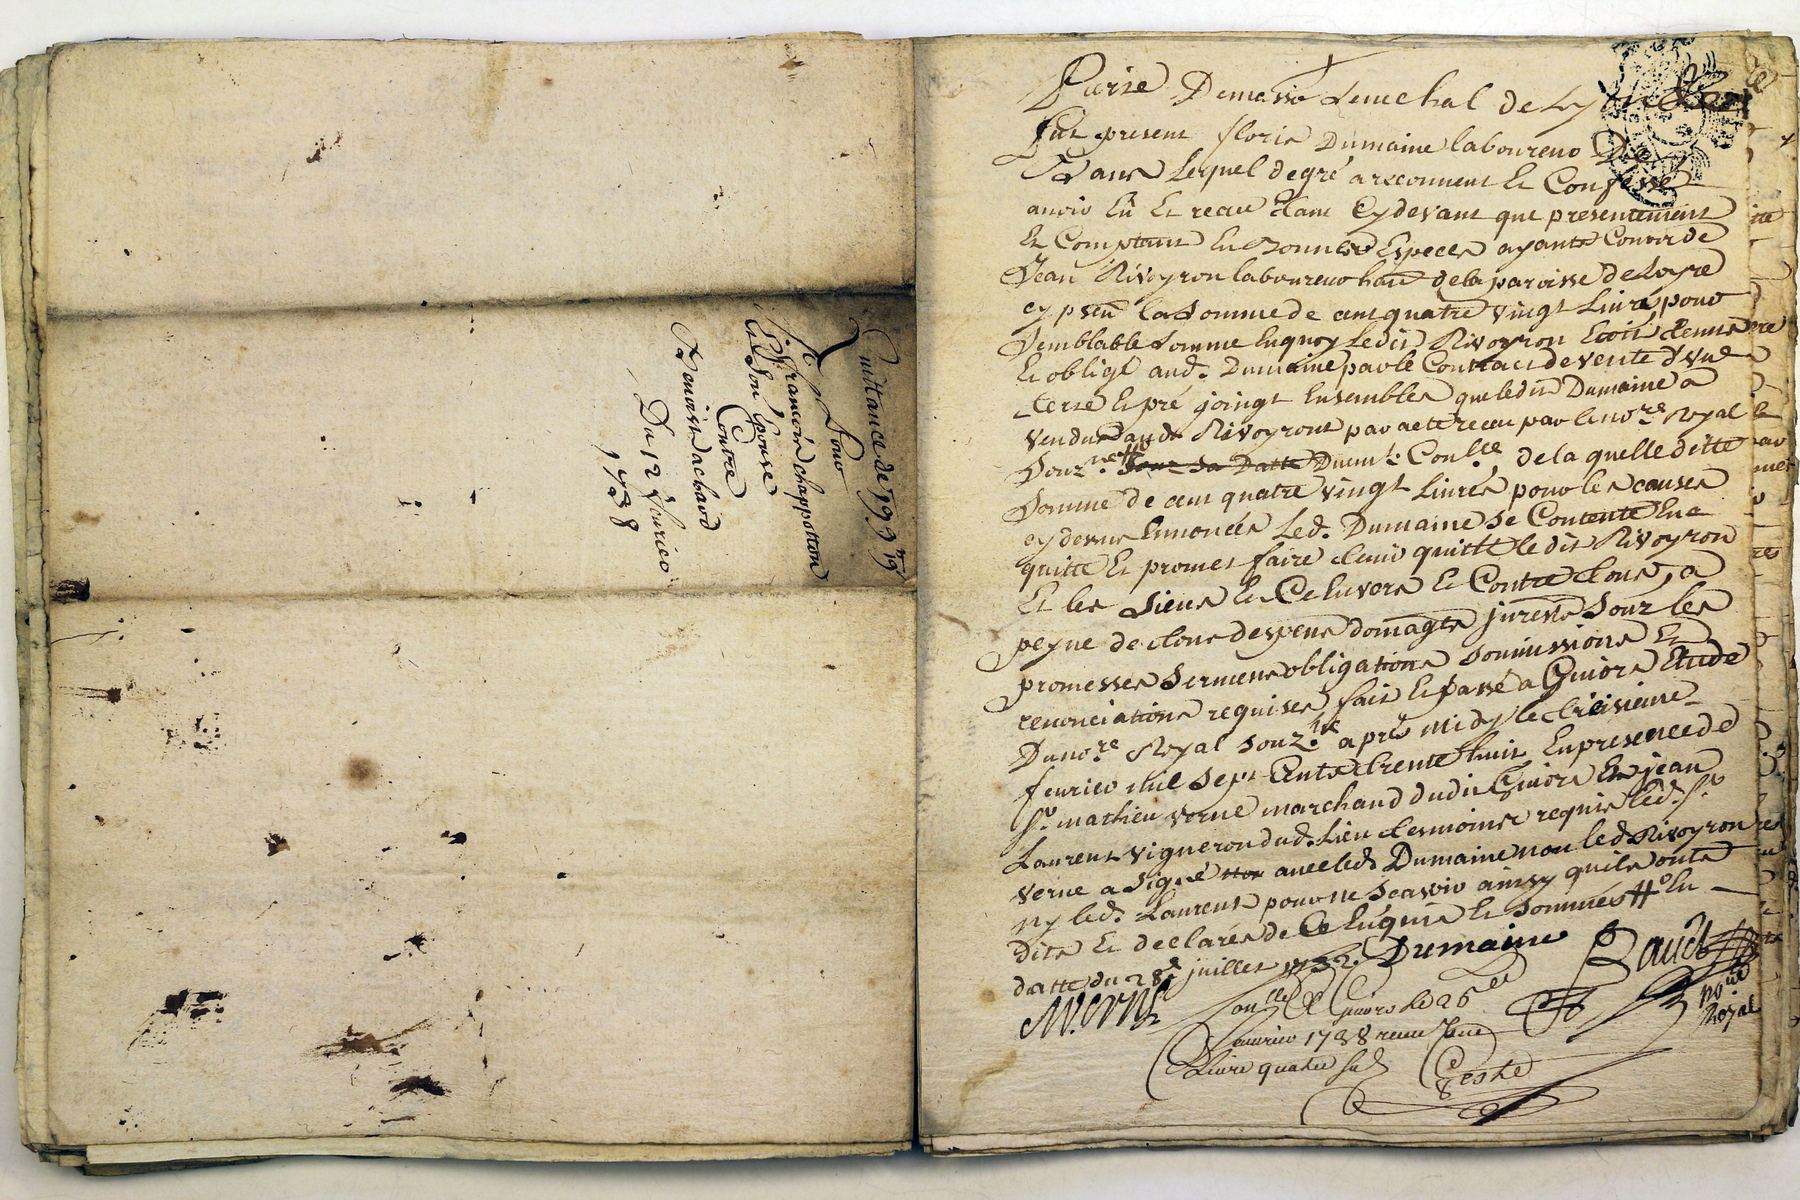 Quittance de 199
Pour
Sr francois chappotton
Et Son Epouse
Contre
Benoist achard
Du 12 feurier
1738
Fut present floris Dumaine laboureur De
Lequel degré a reconneut Et Confessé
auoir Eü Et receu tant Cydevant que presentement
Et Comptant En bonnes Especes ayants Cours de
Jean Rivoyron laboureur hatt de la paroisse de Loyre
cy psent la Somme de cent quatre vingt Liures pour
Semblable Somme Enquoy Ledit Rivoyron Etoit tenu
Et obligé aud. Dumaine par le Contract de vente d'vne
terre Et pré joingt Ensembles que ledit Dumaine a
Vendu Rivoyront par acte receu par le nore Royal
Souzne Sous Sa Datte de la quelle ditte
Somme de cent quatre vingt Liures pour les causes
cy devant Ennoncés Led. Dumaine Se Contente En
quitte Et promet faire tenir quitte le dit Rivoyron
Et les Siens Et Ce Envers Et Contre tous, a
peyne de tous despens domages jnterests Souz les
promesses Serments obligations Soumissions Et
renonciations requises fait Et passé a Givors Etude
Du nore Royal Souz.né apres midy le treisieme
feurier mil Sept Cents trente huit En presence de
Sr. mathieu verne marchand dudit Givors Et jean
Laurent vigneron dud. Lieu temoins requis led. Sr
verne a Signé non avec led. Dumaine non led Rivoyron
ny led. Laurent pour ne Scavoir ainsy quils onts
dits Et declarés de Ce Enquis Et Sommés # En
datte du 28e juillet 1732. Dumaine
M. Verne
Conllé A Givors le 26
feurier 1738 receu
Liure quatre sols
Baudt
Royal